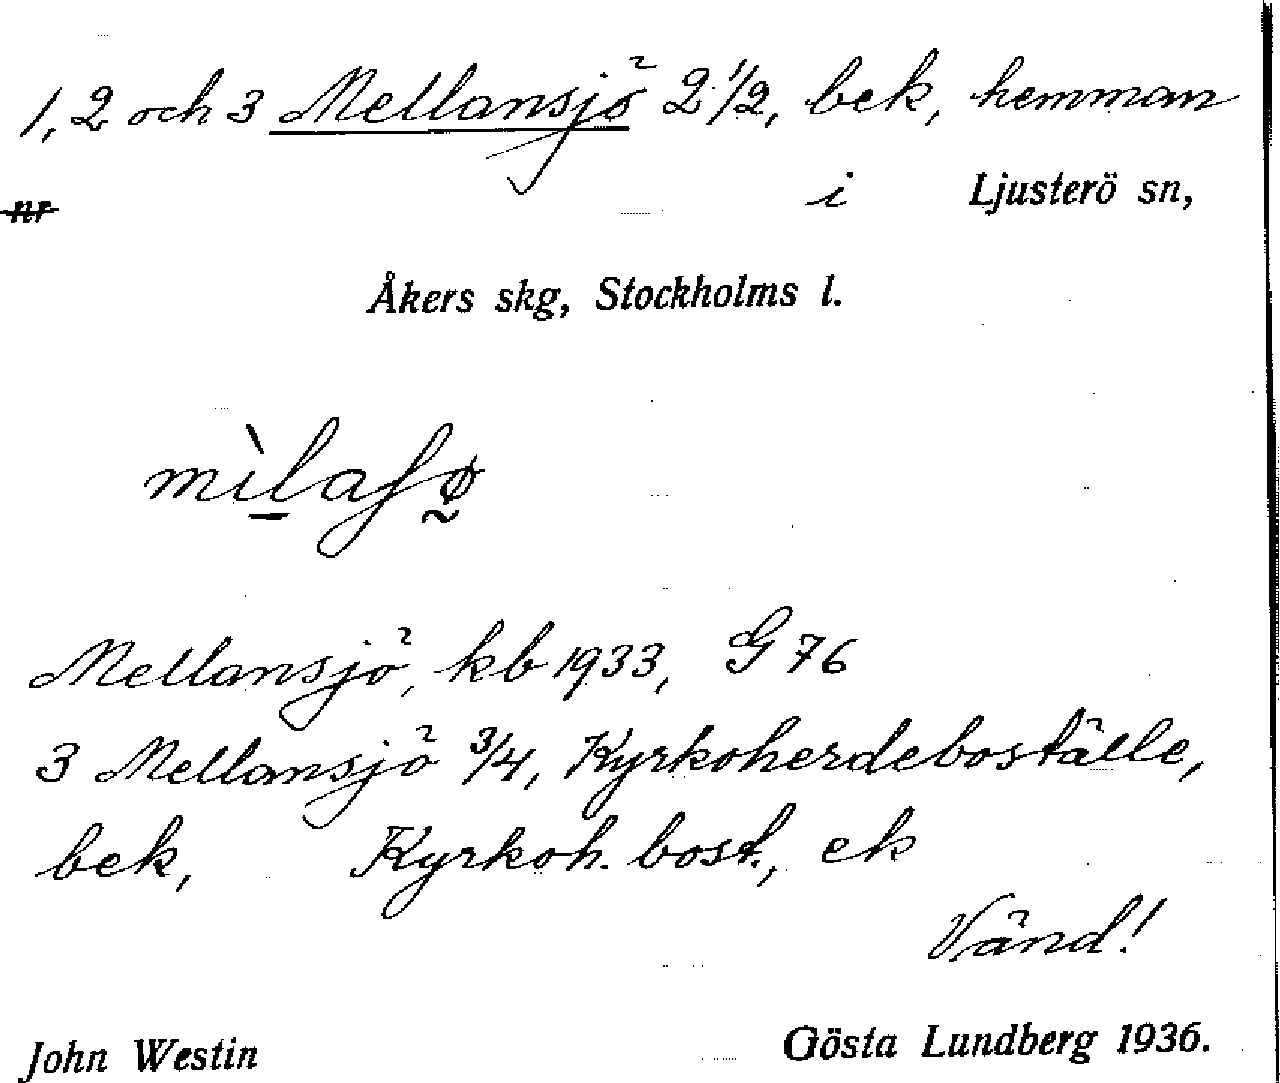 1, 2 och 3 Mellansjö 2 1/2, bek, hemman
nr i Ljusterö sn,
Åkers skg, Stockholms l.
Mellansjö, kb 1933, G 76
3 Mellansjö 3/4, Kyrkoherdeboställe,
bek, Kyrkoh. bost., ek
Vänd!
John Westin Gösta Lundberg 1936.